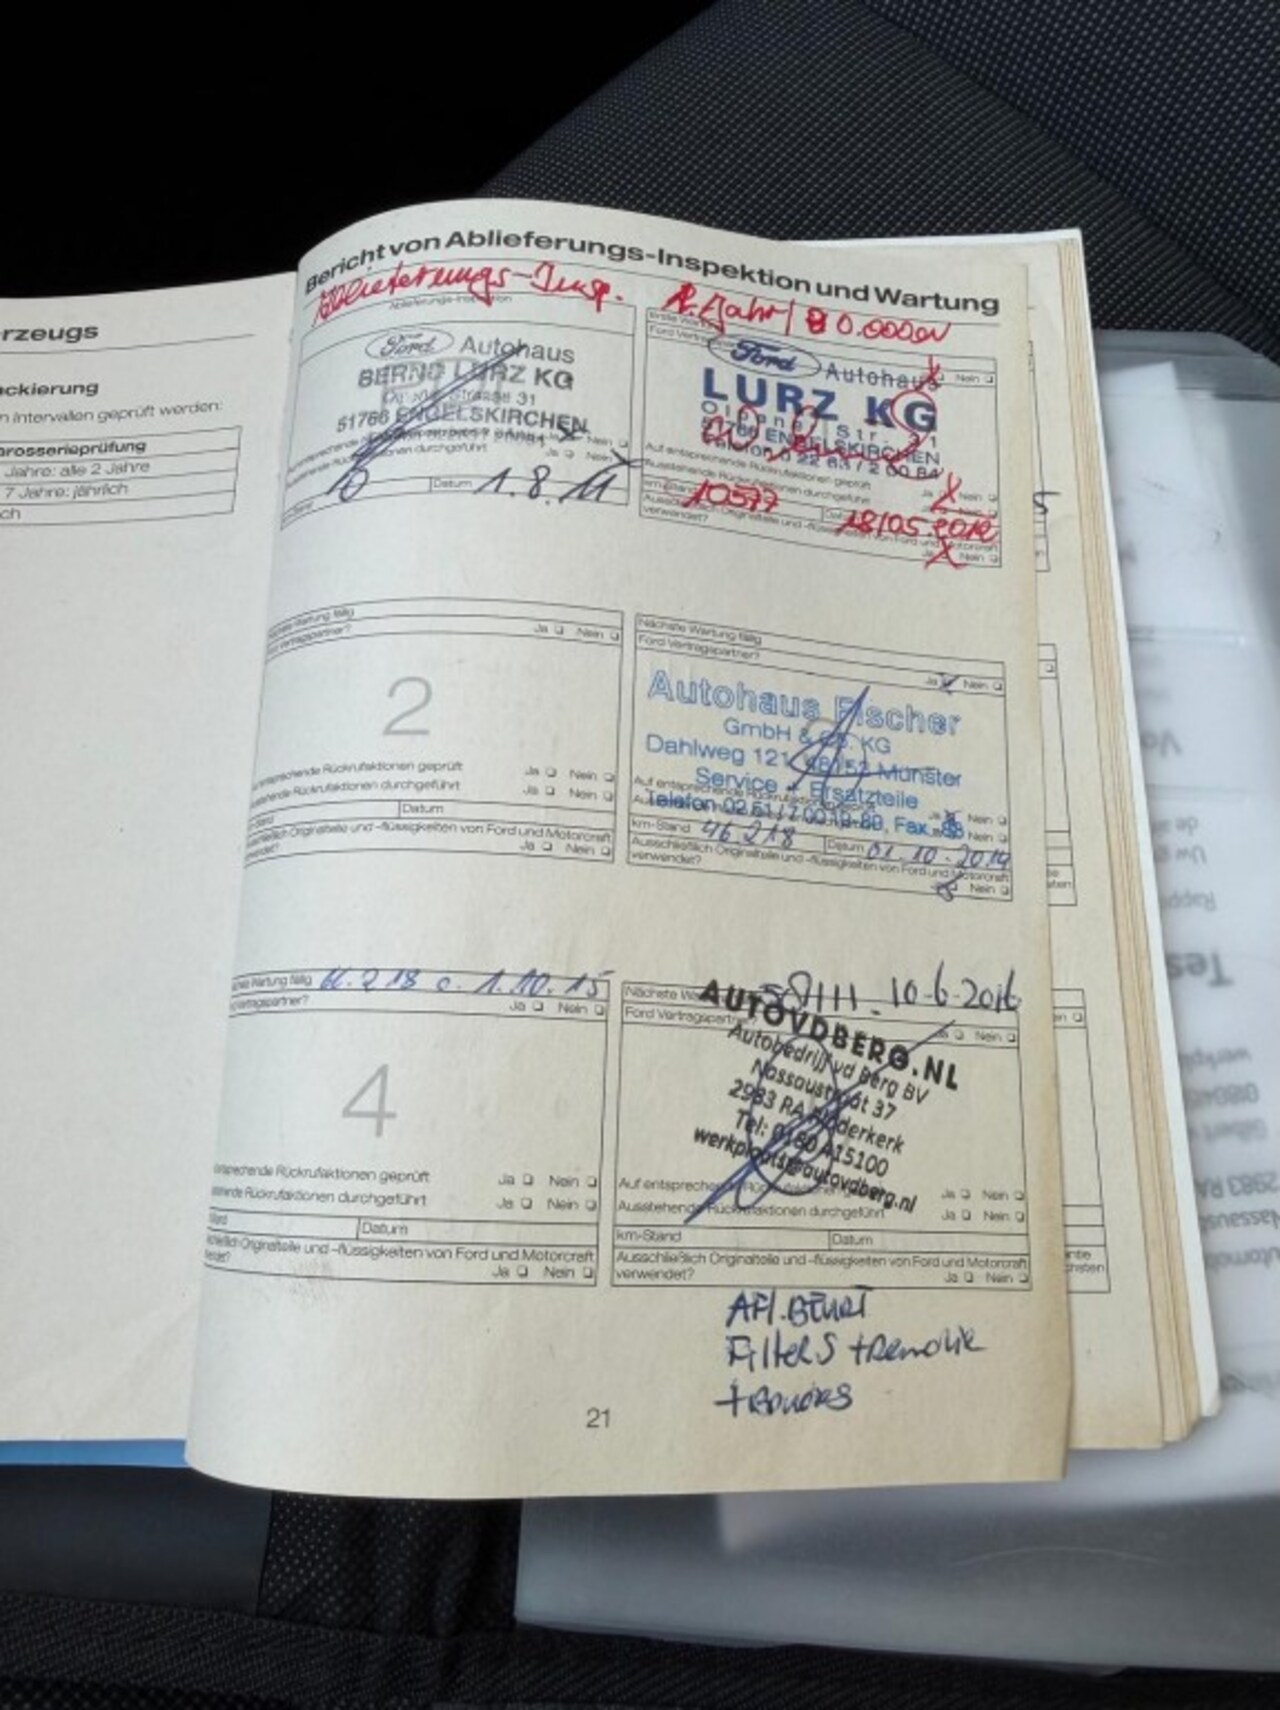 rzeugs
ackierung
n Intervallen geprüft werden:
arosserieprüfung
Jahre: alle 2 Jahre
7 Jahre: jährlich
ch
Bericht von Ablieferungs-Inspektion und Wartung
Ablieferungs-Insp.
Ablieferungs-Inspektion
Ford Autohaus
BERND LURZ KG
31
51766 ENGELSKIRCHEN
Nein
durchgeführt
Ja Nein
0 Datum 1.8.11
1. Jahr /
Ford Autohaus
Nein
LURZ KG
Olpener Str. 31
51766 ENGELSKIRCHEN
Telefon 0 22 63 / 2 00 84
Auf entsprechende Rückrufaktionen geprüft
Ausstehende Rückrufaktionen durchgeführt Ja Nein
km-Stand 10577 18/05.2012
Ausschließlich Originalteile und -flüssigkeiten von Ford und Motorcraft
verwendet? Ja Nein
Nächste Wartung fällig
Vertragspartner? Ja Nein
2
entsprechende Rückrufaktionen geprüft Ja Nein
Rückrufaktionen durchgeführt Ja Nein
Datum
Originalteile und -flüssigkeiten von Ford und Motorcraft
Ja Nein
Nächste Wartung fällig
Ford Vertragspartner?
Ja Nein
Autohaus Fischer
GmbH & Co. KG
Dahlweg 121, 48153 Münster
Service + Ersatzteile
Telefon 02 51 / 7 00 18-80, Fax -88
Nein
km-Stand 46.218 Datum 01.10.2014
Ausschließlich Originalteile und -flüssigkeiten von Ford und Motorcraft
verwendet? Nein
Wartung fällig 66.218 o. 1.10.15
Vertragspartner? Ja Nein
4
entsprechende Rückrufaktionen geprüft Ja Nein
Rückrufaktionen durchgeführt Ja Nein
Datum
Originalteile und -flüssigkeiten von Ford und Motorcraft
Ja Nein
Nächste 58111. 10-6-2016
Ford Vertragspartner? Ja Nein
AUTOVDBERG.NL
Autobedrijf vd Berg BV
Nassaustraat 37
2983 RA Ridderkerk
Tel: 0180 415100
werkplaats@autovdberg.nl
Auf entsprechende Rückrufaktionen Ja Nein
Ausstehende Rückrufaktionen durchgeführt Ja Nein
km-Stand Datum
Ausschließlich Originalteile und -flüssigkeiten von Ford und Motorcraft
verwendet? Ja Nein
Filters
21